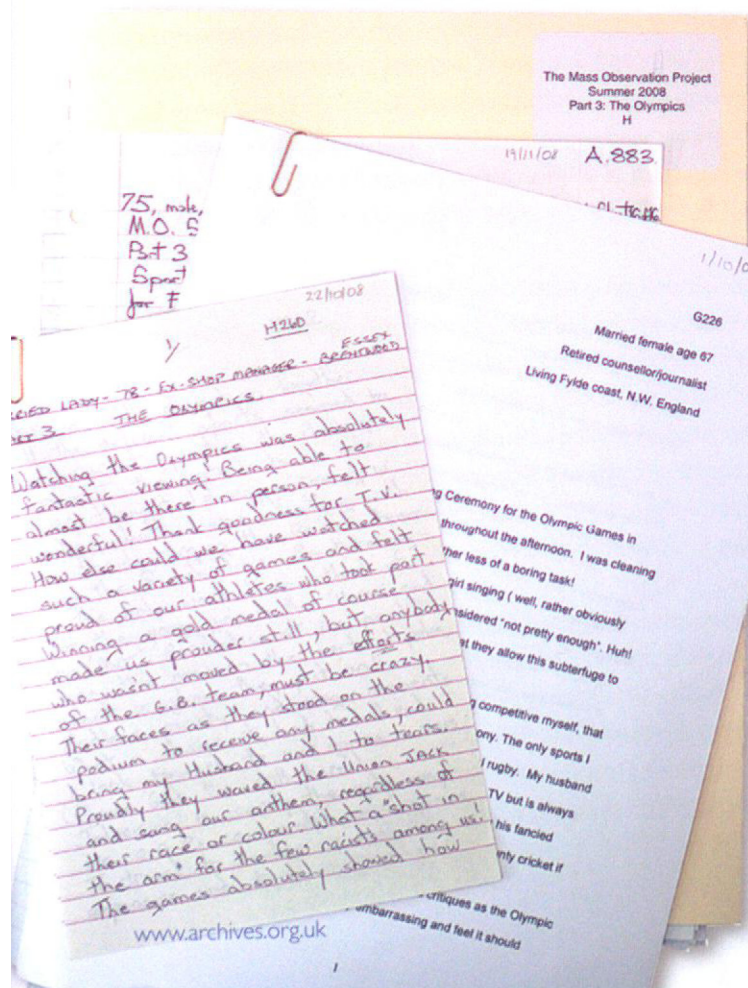 The Mass Observation Project
Summer 2008
Part 3: The Olympics
H
19/11/08 A.883.
75, male,
M.O. S
Part 3
Sport
for F
1/10/0
G226
Married female age 67
Retired counsellor/journalist
Living Fylde coast, N.W. England
g Ceremony for the Olympic Games in
throughout the afternoon. I was cleaning
her less of a boring task!
girl singing ( well, rather obviously
nsidered "not pretty enough". Huh!
at they allow this subterfuge to
g competitive myself, that
ony. The only sports I
l rugby. My husband
TV but is always
his fancied
nty cricket if
critiques as the Olympic
embarrassing and feel it should
1
22/10/08
H260
1/
RRIED LADY - 78 - EX-SHOP MANAGER - BRENTWOOD
ESSEX
ART 3 THE OLYMPICS.
Watching the Olympics was absolutely
fantastic viewing! Being able to
almost be there in person, felt
wonderful! Thank goodness for T.V.
How else could we have watched
such a variety of games and felt
proud of our athletes who took part.
Winning a gold medal of course
made us prouder still, but anybody
who wasn't moved by the efforts
of the G.B. team, must be crazy.
Their faces as they stood on the
podium to receive any medals, could
being my Husband and I to tears.
Proudly they waved the Union Jack
and sang our anthem, regardless of
their race or colour. What a "shot in
the arm" for the few racists among us!
The games absolutely showed how
www.archives.org.uk